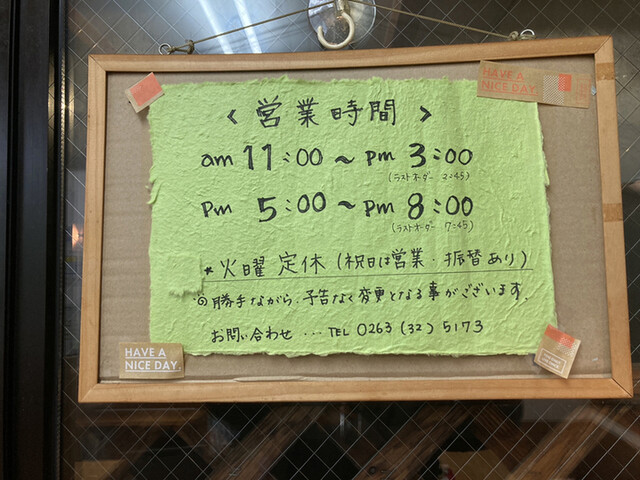 HAVE A
NICE DAY.
< 営業時間 >
am 11:00 ~ pm 3:00
(ラストオーダー 2:45)
pm 5:00 ~ pm 8:00
(ラストオーダー 7:45)
* 火曜 定休 (祝日は営業・振替あり)
◎勝手ながら、予告なく変更となる事がございます。
お問い合わせ … TEL 0263 (32) 5173
HAVE A
NICE DAY.